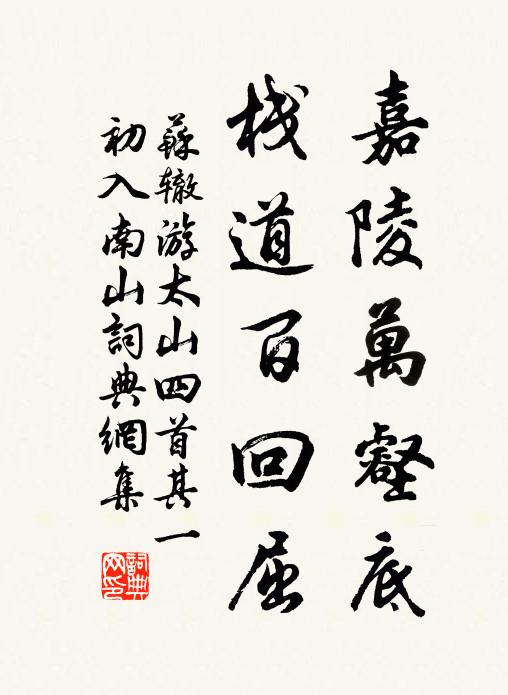 嘉陵萬壑底
栈道百回屈
蘇辙游太山四首其一
初入南山詞典網集
詞典網印